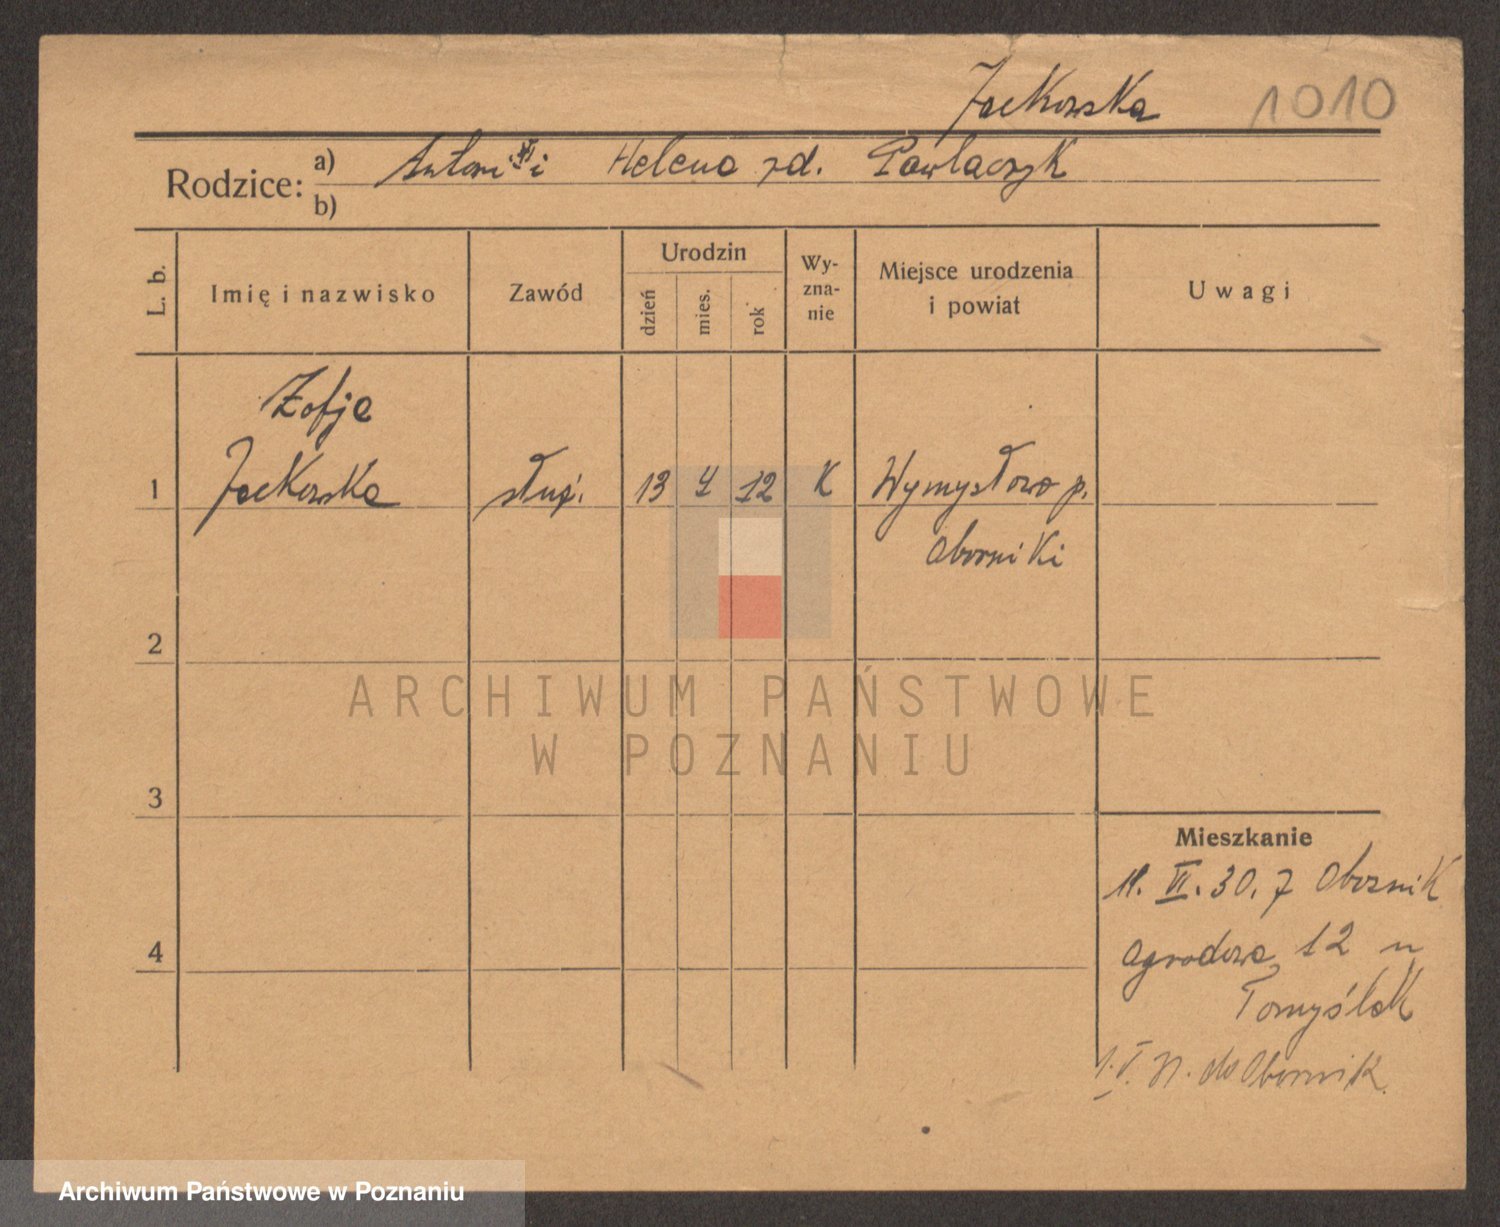 Jackowska 1010
Rodzice: a) Antoni i Helena rd. Pawlaczyk
b)
L. b. Imię i nazwisko Zawód Urodzin dzień mies. rok Wy-zna-nie Miejsce urodzenia i powiat Uwagi
Zofja
1 Jackowska służ. 13 4 12 K Wymysłowo p.
Oborniki
2
3
4
Mieszkanie
11. VI. 30. z Obornik
Ogrodowa 12 u
Tomyślak
1. V. do Obornik.
ARCHIWUM PAŃSTWOWE
W POZNANIU
Archiwum Państwowe w Poznaniu